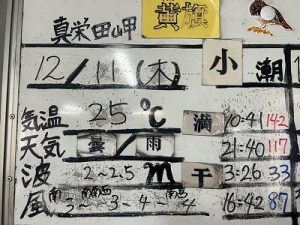 真栄田岬 黄旗
12/11(木) 小潮
気温 25℃ 満 10:41 142
天気 曇/雨 21:40 117
波 2~2.5m 干 3:26 33
風 南3~南南西3~4~南西4 16:42 87